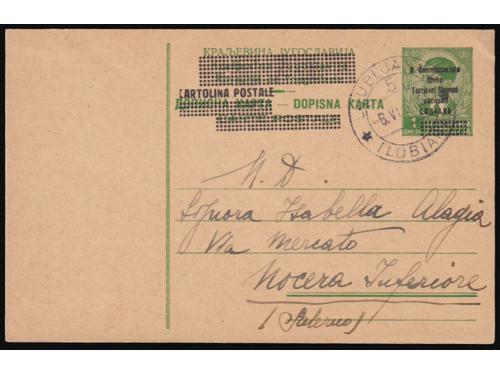 КРАЉЕВИНА ЈУГОСЛАВИЈА
CARTOLINA POSTALE
ДОПИСНА КАРТА — DOPISNA KARTA
R. Commissariato
Civile
Territori Sloveni
occupati
LUBIANA
5
-6.VI
N. D.
Signora Isabella Alagia
Via Mercato
Nocera Inferiore
(Salerno)